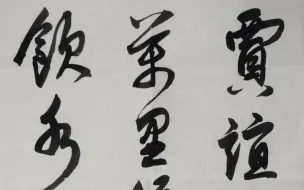 賈誼
萬里
飲水